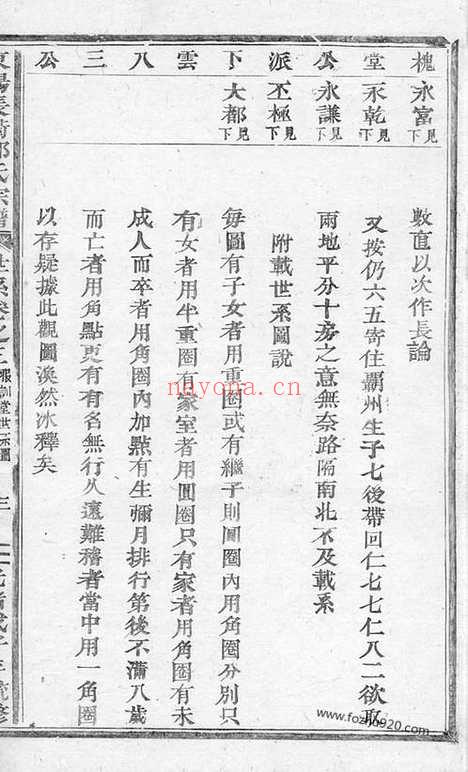 槐 永富 見下
堂 永乾 見下
公 永謙 見下
派 丕極 見下
下 大都 見下
雲
八
三
公
數直以次作長論
又按仍六五寄住覇州生子七後帶回仁七七仁八二欲取
兩地平分十房之意無奈路隔南北不及載系
附載世系圖說
每圖有子女者用重圈或有繼子則圓圈內用角圈分別只
有女者用半重圈有家室者用圓圈只有家者用角圈有未
成人而卒者用角圈內加點有生彌月排行第後不滿八歲
而亡者用角點更有有名無行久遠難稽者當中用一角圈
以存疑據此觀圖渙然冰釋矣
氏宗譜
世系卷之三
報訓堂世系圖
三
nayona.cn
www.fozhu920.com